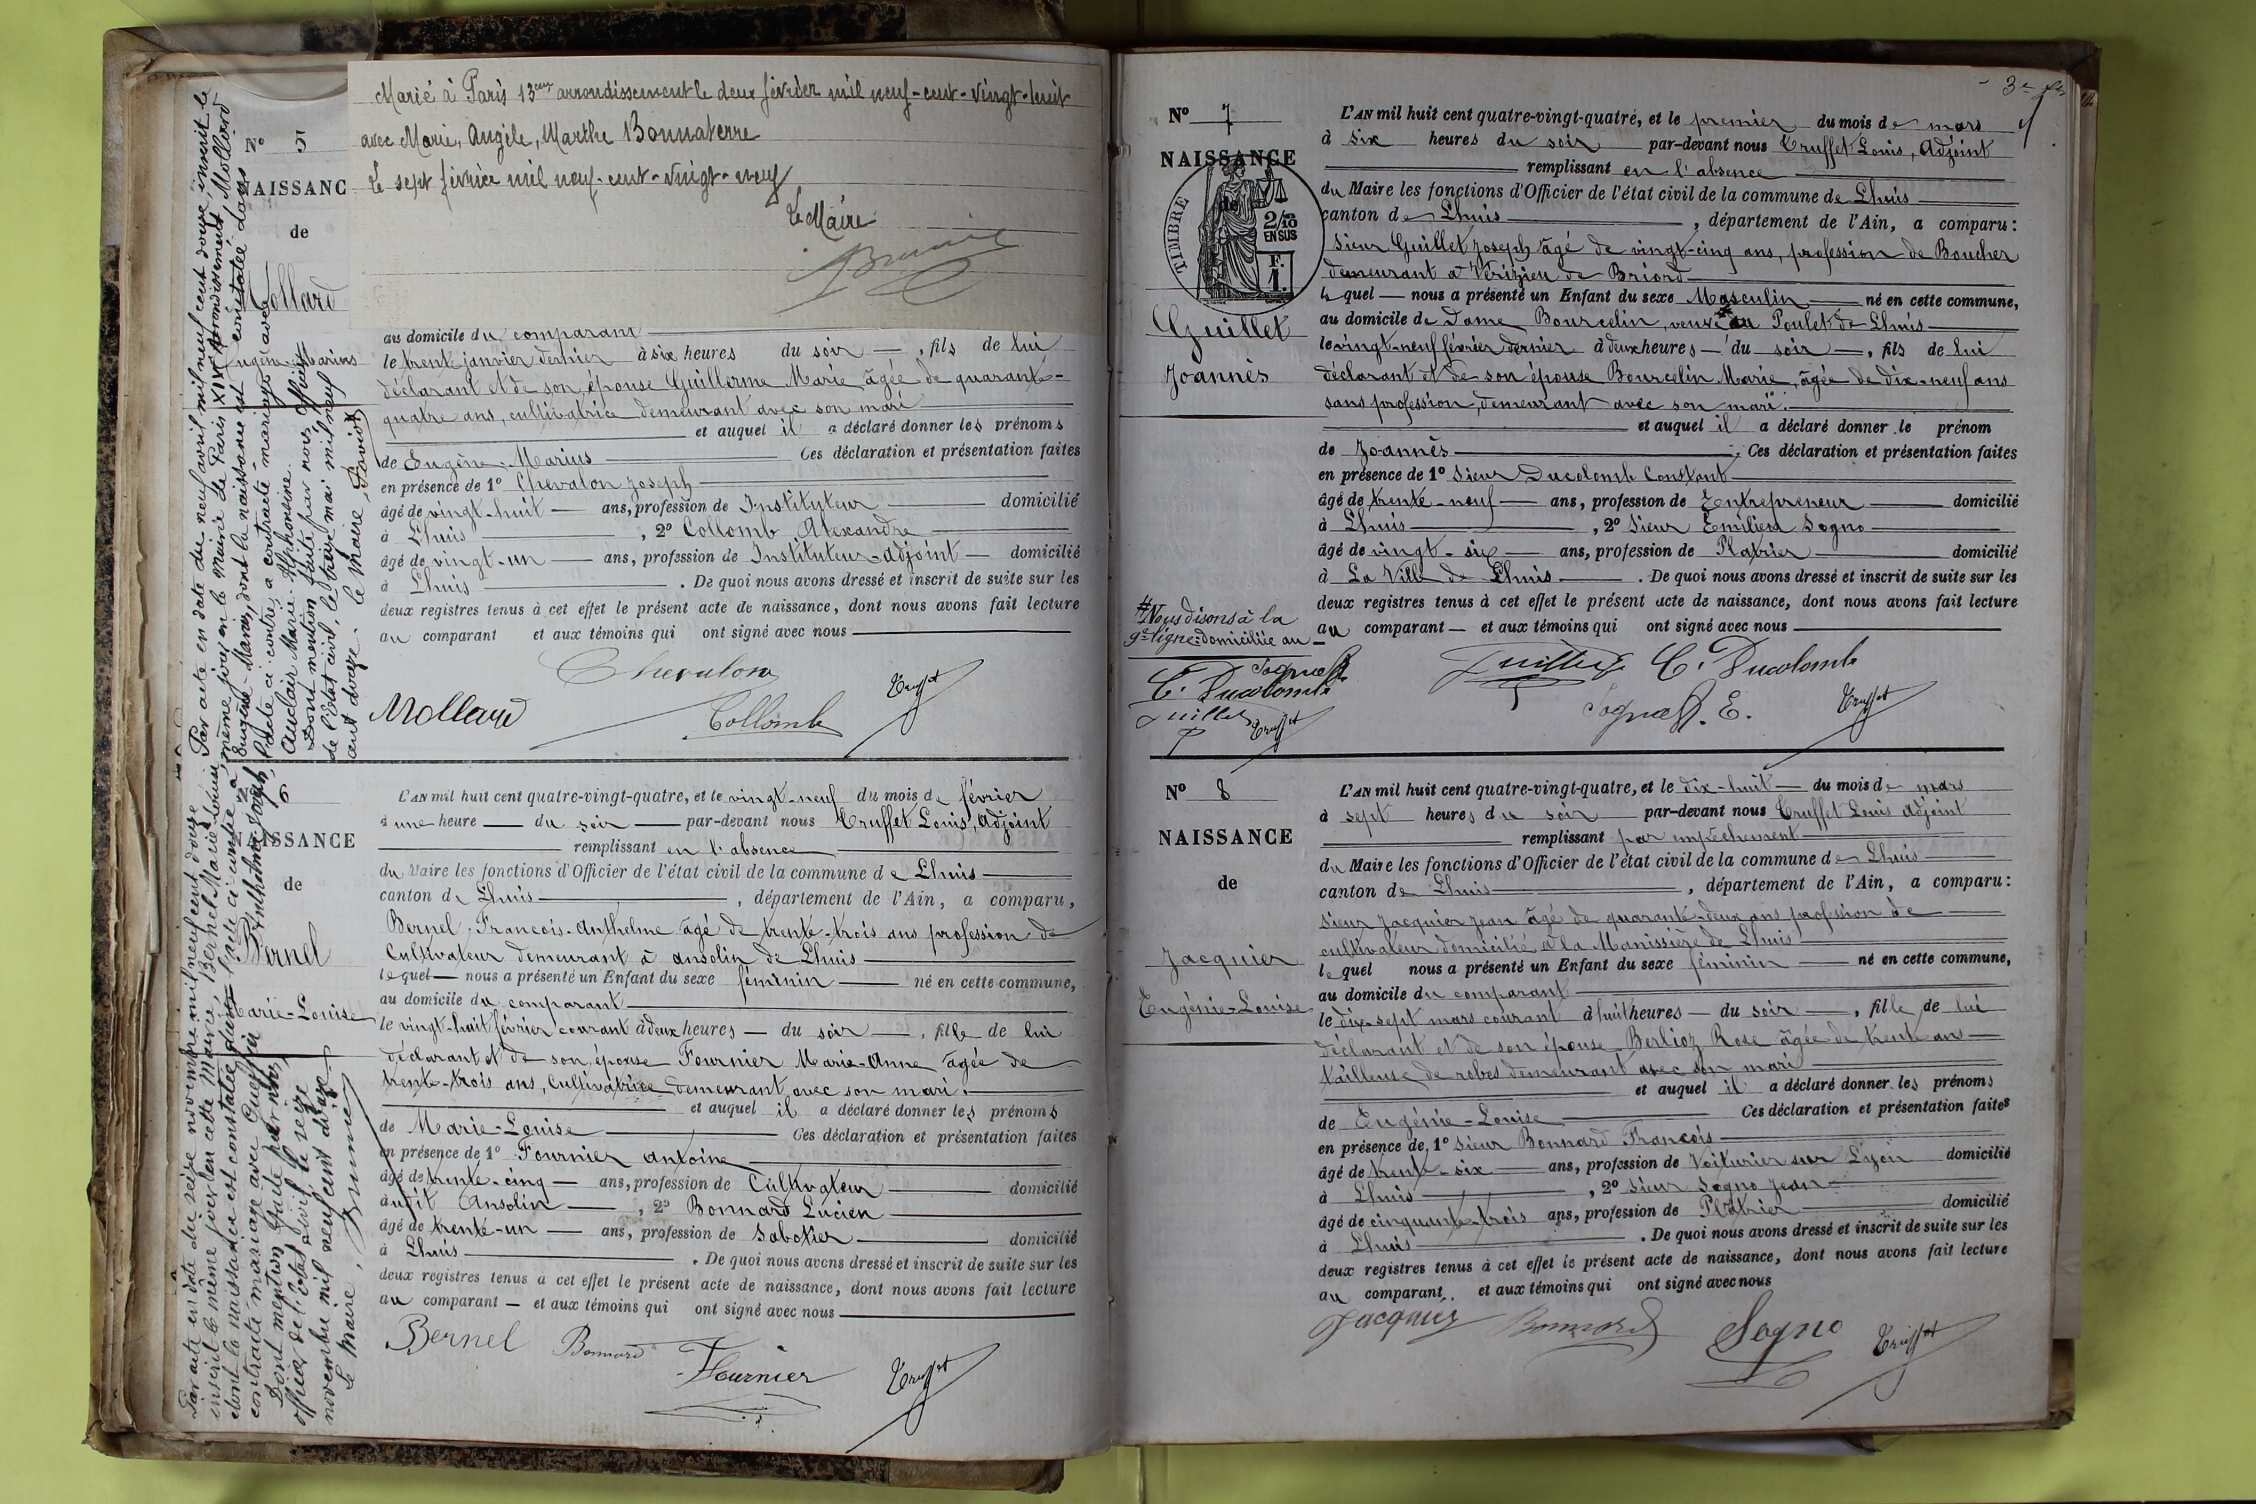 Marié à Paris 13eme arrondissement le deux février mil neuf-cent-vingt-huit
avec Marie, Angèle, Marthe Bonnaterre
Le sept février mil neuf-cent-vingt-neuf
Le Maire
No 5
NAISSANC
de
Mollard
Eugène-Marius
au domicile du comparant
le trente janvier dernier à six heures du soir, fils de lui
déclarant et de son épouse Guillerme Marie, âgée de quarante-
quatre ans, cultivatrice demeurant avec son mari
et auquel il a déclaré donner les prénoms
de Eugène-Marius Ces déclaration et présentation faites
en présence de 1o Chevalon Joseph
âgé de vingt-huit ans, profession de Instituteur domicilié
à Lhuis, 2o Collomb Alexandre
âgé de vingt-un ans, profession de Instituteur-adjoint domicilié
à Lhuis. De quoi nous avons dressé et inscrit de suite sur les
deux registres tenus à cet effet le présent acte de naissance, dont nous avons fait lecture
au comparant et aux témoins qui ont signé avec nous
Chevalon
Mollard Collomb Truffet
Par acte en date du neuf avril mil neuf cent douze inscrit le
même jour en la mairie de Paris XIVe arrondissement, Mollard
Eugène-Marius, dont la naissance est constatée dans
l'acte ci contre, a contracté mariage avec
Auclair Marie-Alphonsine.
Dont mention faite par nous officier
de l'état civil, le treize mai mil neuf
cent douze. Le Maire,
6
NAISSANCE
de
Bernel
Marie-Louise
L'AN mil huit cent quatre-vingt-quatre, et le vingt-neuf du mois de février
à une heure du soir par-devant nous Truffet Louis, Adjoint
remplissant en l'absence
du Maire les fonctions d'Officier de l'état civil de la commune de Lhuis
canton de Lhuis, département de l'Ain, a comparu,
Bernel François-Anthelme âgé de trente-trois ans profession de
Cultivateur demeurant à ansolin de Lhuis
lequel nous a présenté un Enfant du sexe féminin né en cette commune,
au domicile du comparant
le vingt-huit février courant à deux heures du soir, fille de lui
déclarant et de son épouse Fournier Marie-Anne âgée de
trente-trois ans, Cultivatrice demeurant avec son mari.
et auquel il a déclaré donner les prénoms
de Marie-Louise Ces déclaration et présentation faites
en présence de 1o Fournier antoine
âgé de trente-cinq ans, profession de Cultivateur domicilié
audit Ansolin, 2o Bonnard Lucien
âgé de trente-un ans, profession de Sabotier domicilié
à Lhuis. De quoi nous avons dressé et inscrit de suite sur les
deux registres tenus à cet effet le présent acte de naissance, dont nous avons fait lecture
au comparant et aux témoins qui ont signé avec nous
Bernel Bonnard Fournier Truffet
Par acte en date du seize novembre mil neuf cent douze
inscrit le même jour en cette mairie, Bernel Marie-Louise
dont la naissance est constatée dans l'acte ci contre a
contracté mariage avec Anthelme Joseph
Dont mention faite par nous
officier de l'état civil, le seize
novembre mil neuf cent douze
Le Maire,
3e
No 7
NAISSANCE
de
TIMBRE
2/10
EN SUS
F.
1.
Guillet
Joannès
L'AN mil huit cent quatre-vingt-quatre, et le premier du mois de mars
à six heures du soir par-devant nous Truffet Louis, Adjoint
remplissant en l'absence
du Maire les fonctions d'Officier de l'état civil de la commune de Lhuis
canton de Lhuis, département de l'Ain, a comparu:
Sieur Guillet Joseph âgé de vingt-cinq ans, profession de Boucher
demeurant à Vérizieu de Briord
lequel nous a présenté un Enfant du sexe Masculin né en cette commune,
au domicile de Dame Bourcelin, veuve au Poulet de Lhuis
le vingt-neuf février dernier à deux heures du soir, fils de lui
déclarant et de son épouse Bourcelin Marie, âgée de dix-neuf ans
sans profession, demeurant avec son mari.
et auquel il a déclaré donner le prénom
de Joannès. Ces déclaration et présentation faites
en présence de 1o Sieur Ducolomb Constant
âgé de trente-neuf ans, profession de Entrepreneur domicilié
à Lhuis, 2o Sieur Emilien Sogno
âgé de vingt-six ans, profession de Platrier domicilié
à La Ville de Lhuis. De quoi nous avons dressé et inscrit de suite sur les
deux registres tenus à cet effet le présent acte de naissance, dont nous avons fait lecture
au comparant et aux témoins qui ont signé avec nous
Nous disons à la
9e ligne: domiciliée au
C. Ducolomb
Guillet Truffet
Guillet C. Ducolomb
Sogno E. Truffet
No 8
NAISSANCE
de
Jacquier
Eugénie-Louise
L'AN mil huit cent quatre-vingt-quatre, et le dix-huit du mois de mars
à sept heures du soir par-devant nous Truffet Louis adjoint
remplissant par empêchement
du Maire les fonctions d'Officier de l'état civil de la commune de Lhuis
canton de Lhuis, département de l'Ain, a comparu:
Sieur Jacquier Jean âgé de quarante-deux ans profession de
cultivateur domicilié à la Manissière de Lhuis
lequel nous a présenté un Enfant du sexe féminin né en cette commune,
au domicile du comparant
le dix-sept mars courant à huit heures du soir, fille de lui
déclarant et de son épouse Berlioz Rose âgée de trente ans
tailleuse de robes demeurant avec son mari
et auquel il a déclaré donner les prénoms
de Eugénie-Louise Ces déclaration et présentation faites
en présence de 1o Sieur Bonnard François
âgé de trente-six ans, profession de Voiturier sur Lyon domicilié
à Lhuis, 2o Sieur Sogno Jean
âgé de cinquante-trois ans, profession de Platrier domicilié
à Lhuis. De quoi nous avons dressé et inscrit de suite sur les
deux registres tenus à cet effet le présent acte de naissance, dont nous avons fait lecture
au comparant et aux témoins qui ont signé avec nous
Jacquier Bonnard Sogno Truffet